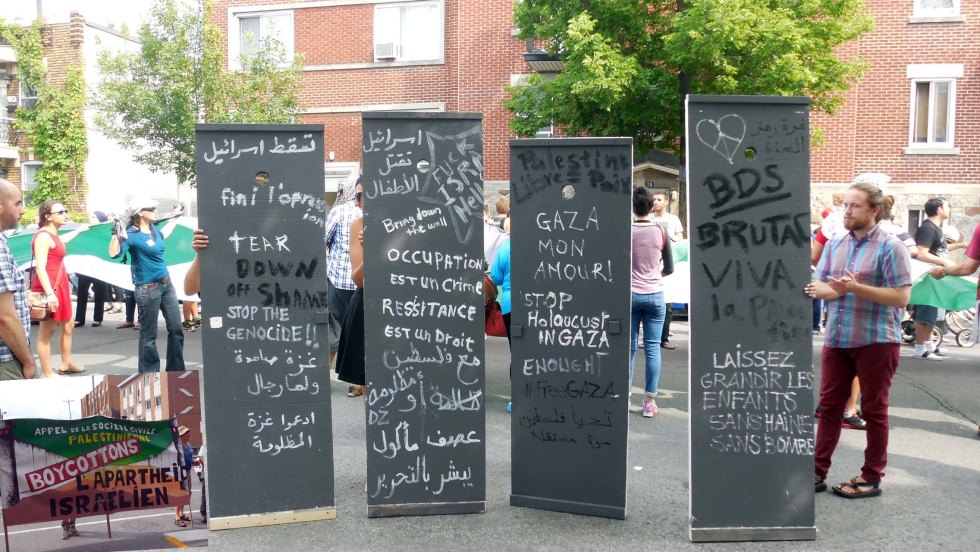 تسقط اسرائيل
fini l'opress
ion
TEAR
DOWN
OFF SHAME
STOP THE
GENOCIDE!!
غزة صامدة
ولها رجال
ادعوا غزة
المظلومة
اسرائيل
تقتل
الأطفال
FUCK
ISR
Bring down
the wall
OCCUPATION
EST UN CRIME
RESISTANCE
EST UN DROIT
مع فلسطين
ظالمة أو مظلومة
DZ
عصف مأكول
يبشر بالتحرير
Palestine
Libre = Paix
GAZA
MON
AMOUR!
STOP
Holocaust
IN GAZA
ENOUGHT
#FreeGAZA
تحيا فلسطين
حرة مستقلة
غزة رمز
العزة
BDS
BRUTAL
VIVA
la
LAISSEZ
GRANDIR LES
ENFANTS
SANS HAINE
SANS BOMBE
APPEL DE LA SOCIÉTÉ CIVILE
PALESTINIENNE
BOYCOTTONS
L'APARTHEID
ISRAÉLIEN